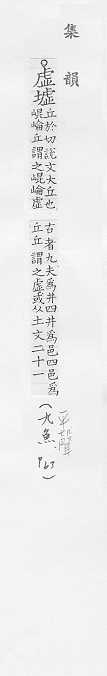 集韻
虛墟
丘於切說文大丘也
崐崘丘謂之崐崘虛
古者九夫爲井四井爲邑四邑爲
丘丘謂之虛或从土文二十一
平聲
(九魚)